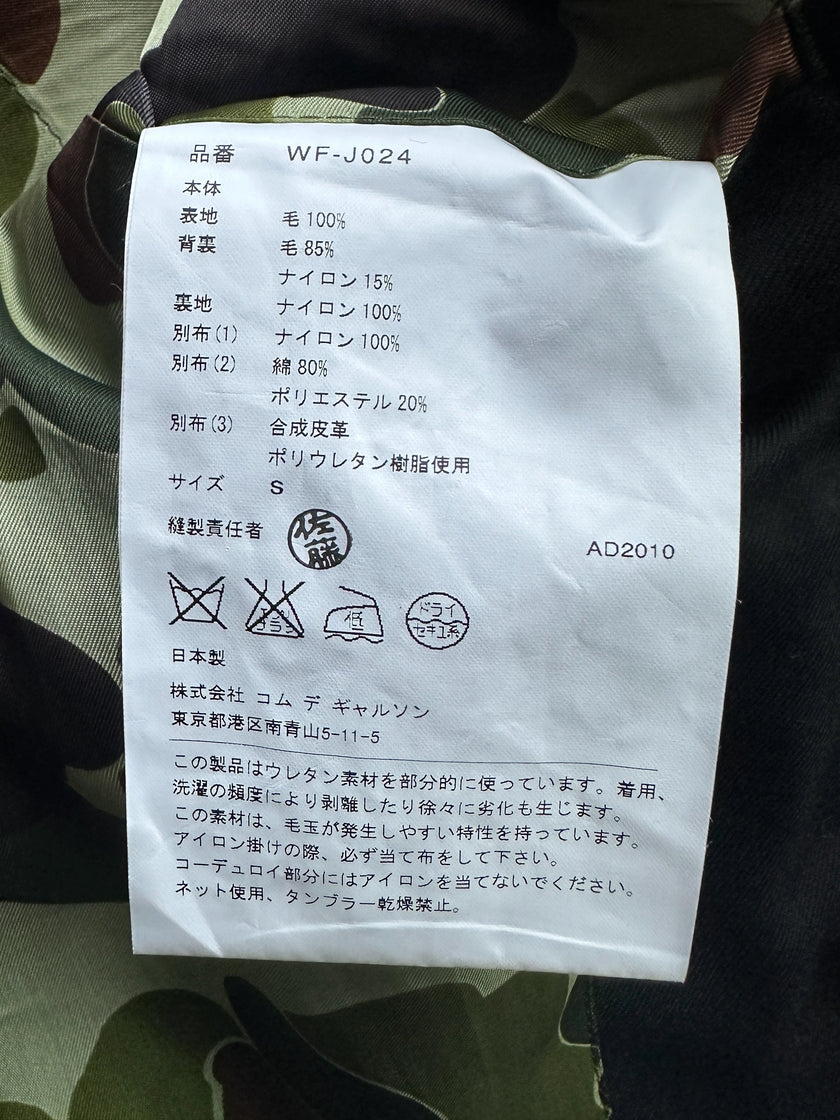 品番 WF-J024
本体
表地 毛 100%
背裏 毛 85%
ナイロン 15%
裏地 ナイロン 100%
別布(1) ナイロン 100%
別布(2) 綿 80%
ポリエステル 20%
別布(3) 合成皮革
ポリウレタン樹脂使用
サイズ S
縫製責任者 佐藤
AD2010
エンソ サラシ
低
ドライ
セキユ系
日本製
株式会社 コム デ ギャルソン
東京都港区南青山5-11-5
この製品はウレタン素材を部分的に使っています。着用、
洗濯の頻度により剥離したり徐々に劣化も生じます。
この素材は、毛玉が発生しやすい特性を持っています。
アイロン掛けの際、必ず当て布をして下さい。
コーデュロイ部分にはアイロンを当てないでください。
ネット使用、タンブラー乾燥禁止。